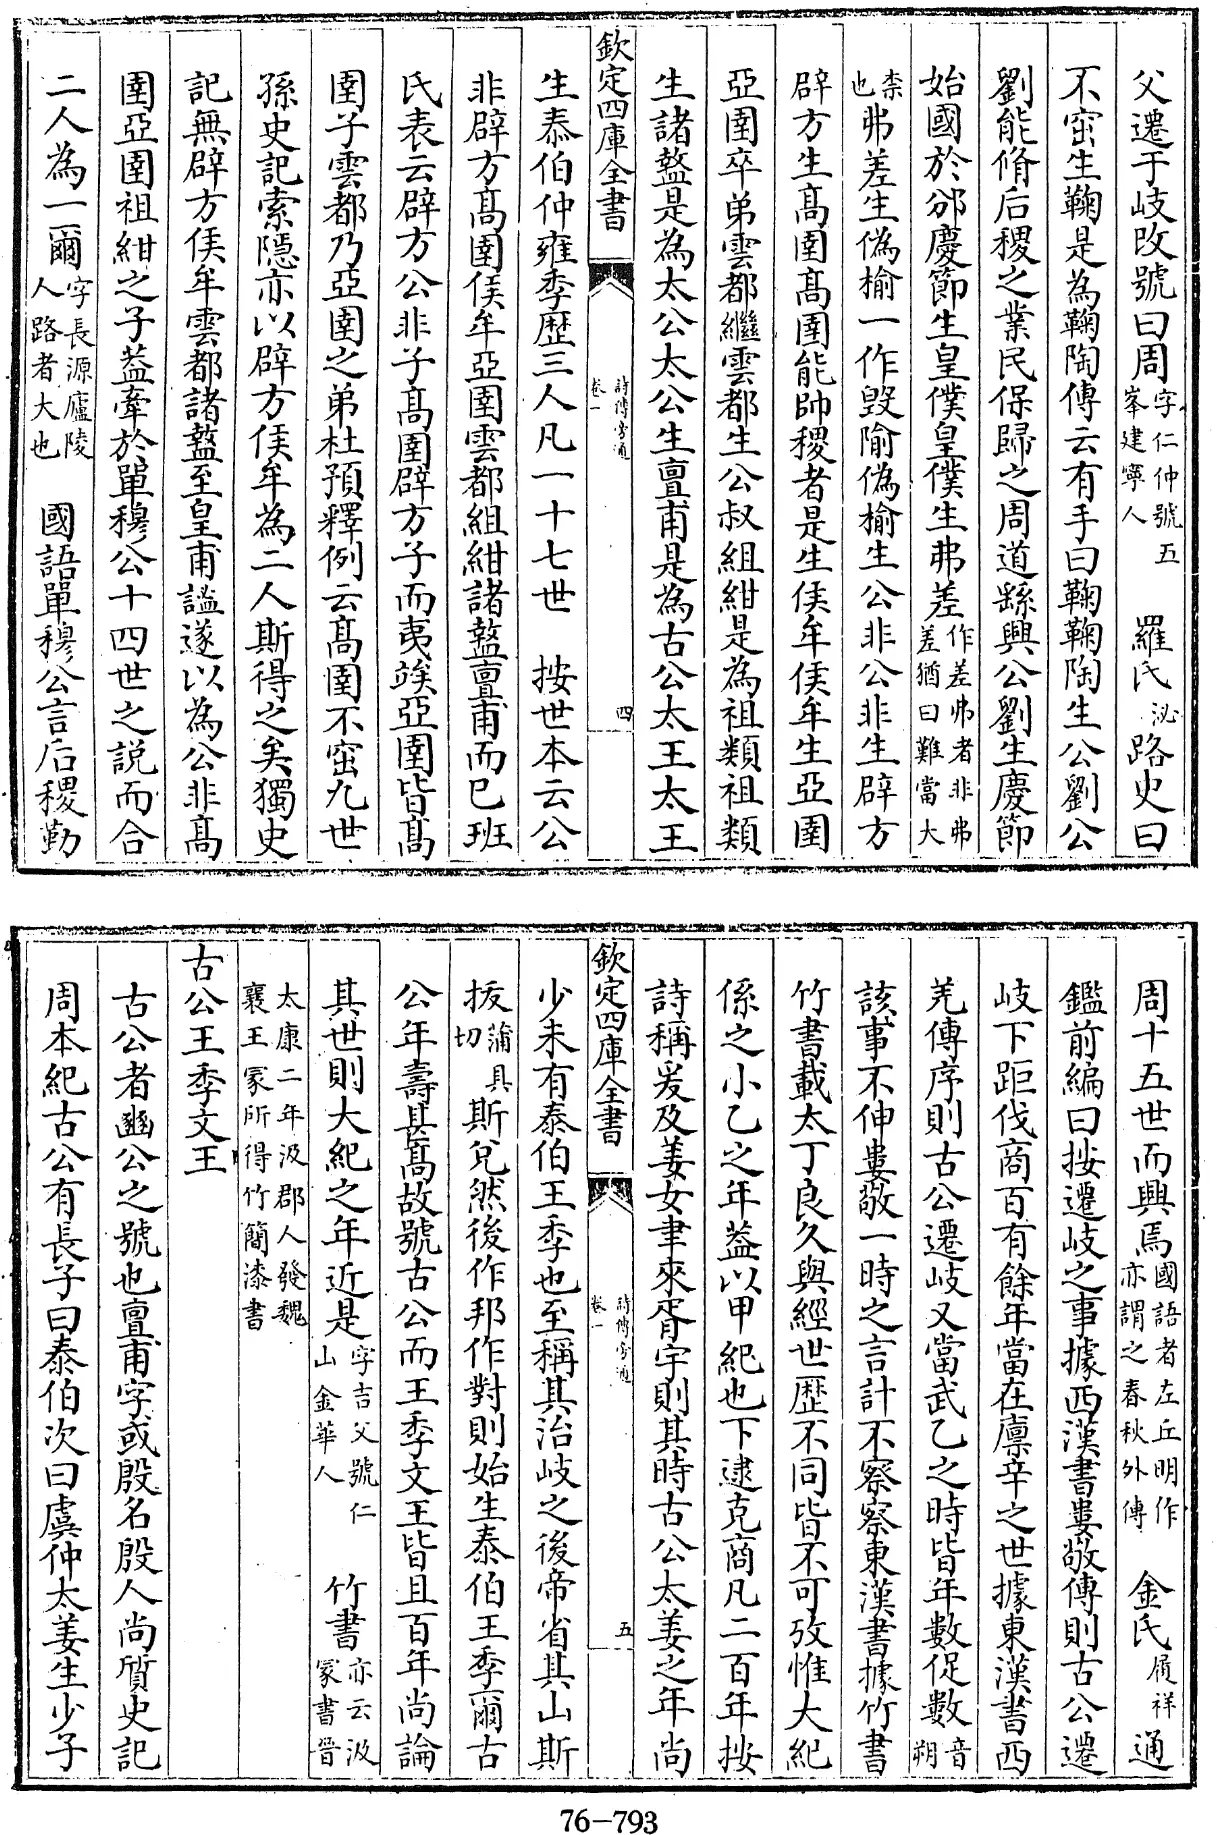 父遷于岐改號曰周字仁仲號五峯建寧人 羅氏泌路史曰
不窋生鞠是為鞠陶傳云有手曰鞠鞠陶生公劉公
劉能脩后稷之業民保歸之周道繇興公劉生慶節
始國於邠慶節生皇僕皇僕生弗差作差弗者非弗差猶曰難當大
柰也弗差生偽榆一作毀隃偽榆生公非公非生辟方
辟方生髙圉髙圉能帥稷者是生侯牟侯牟生亞圉
亞圉卒弟雲都繼雲都生公叔組紺是為祖類祖類
生諸盩是為太公太公生亶甫是為古公太王太王
欽定四庫全書
詩傳旁通
卷一
四
生泰伯仲雍季歴三人凡一十七世 按世本云公
非辟方髙圉侯牟亞圉雲都組紺諸盩亶甫而已班
氏表云辟方公非子髙圉辟方子而夷竢亞圉皆髙
圉子雲都乃亞圉之弟杜預釋例云髙圉不窋九世
孫史記索隱亦以辟方侯牟為二人斯得之矣獨史
記無辟方侯牟雲都諸盩至皇甫謐遂以為公非髙
圉亞圉祖紺之子葢牽於單穆公十四世之説而合
二人為一爾字長源廬陵人路者大也 國語單穆公言后稷勤
周十五世而興焉國語者左丘明作亦謂之春秋外傳 金氏履祥通
鑑前編曰按遷岐之事據西漢書婁敬傳則古公遷
岐下距伐商百有餘年當在廪辛之世據東漢書西
羌傳序則古公遷岐又當武乙之時皆年數促數音朔
該事不伸婁敬一時之言計不察察東漢書據竹書
竹書載太丁良久與經世歴不同皆不可攷惟大紀
係之小乙之年葢以甲紀也下逮克商凡二百年按
詩稱爰及姜女聿來胥宇則其時古公太姜之年尚
欽定四庫全書
詩傳旁通
卷一
五
少未有泰伯王季也至稱其治岐之後帝省其山斯
拔蒲具切斯兌然後作邦作對則始生泰伯王季爾古
公年壽甚髙故號古公而王季文王皆且百年尚論
其世則大紀之年近是字吉父號仁山金華人 竹書亦云汲冢書晉
太康二年汲郡人發魏襄王冢所得竹簡漆書
古公王季文王
古公者豳公之號也亶甫字或殷名殷人尚質史記
周本紀古公有長子曰泰伯次曰虞仲太姜生少子
76-793